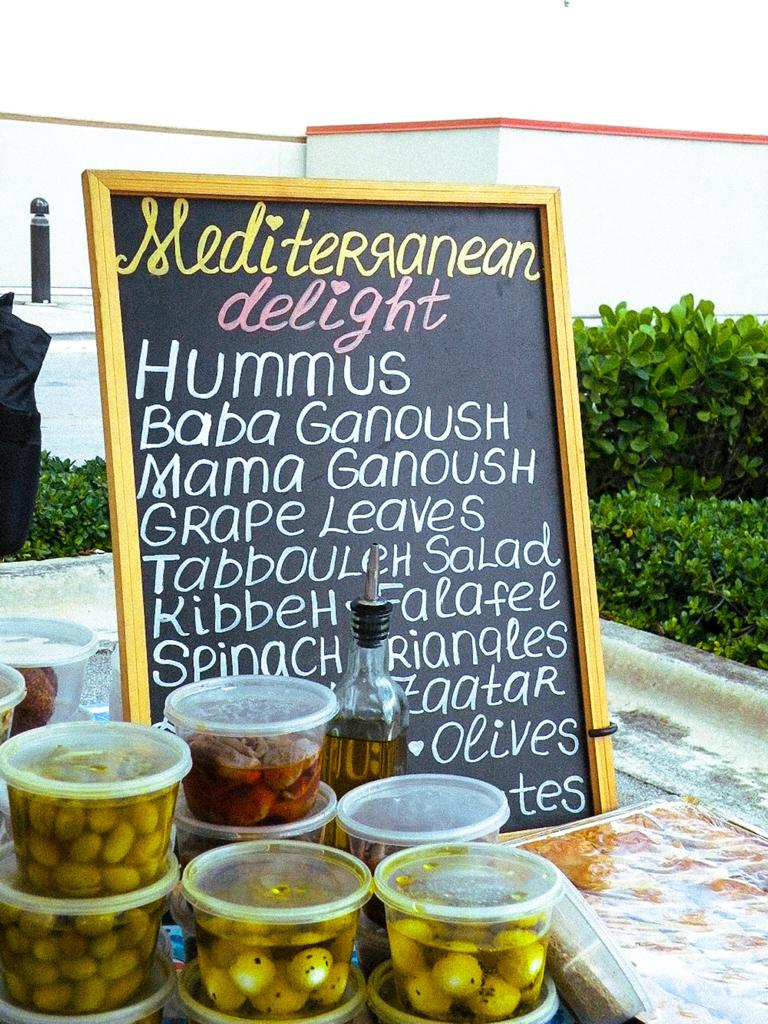 Mediterranean
delight
Hummus
Baba Ganoush
Mama Ganoush
Grape Leaves
Tabbouleh Salad
Kibbeh Falafel
Spinach
Zaatar
Olives